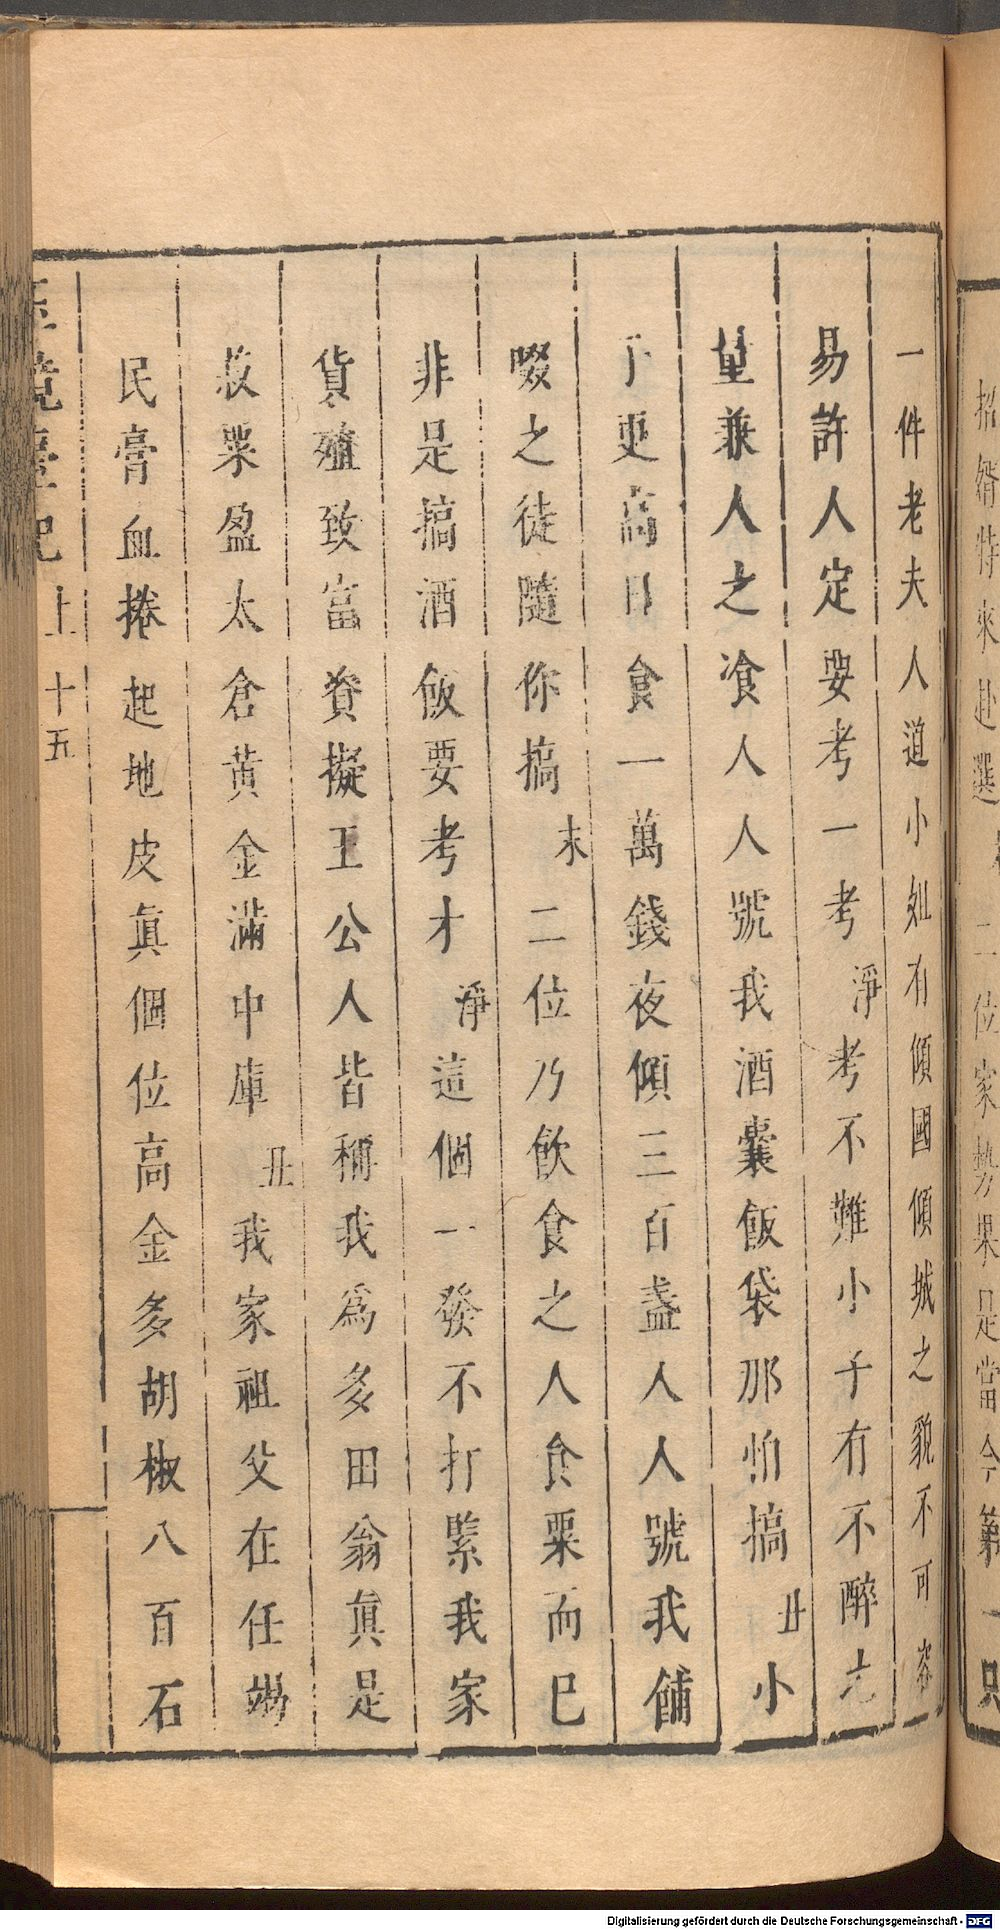 招婿特來赴選
二位家勢果是當今第一只
一件老夫人道小姐有傾國傾城之貌不可容
易許人定要考一考淨考不難小子有不醉之
量兼人之飡人人號我酒囊飯袋那怕搞丑小
子更高日食一萬錢夜傾三百盞人人號我餔
啜之徒隨你搞末二位乃飲食之人食粟而已
非是搞酒飯要考才淨這個一發不打緊我家
貨殖致富貲擬王公人皆稱我爲多田翁眞是
菽粟盈太倉黃金滿中庫丑我家祖父在任竭
民膏血捲起地皮眞個位高金多胡椒八百石
玉鏡臺記 上 十五
Digitalisierung gefördert durch die Deutsche Forschungsgemeinschaft - DFG